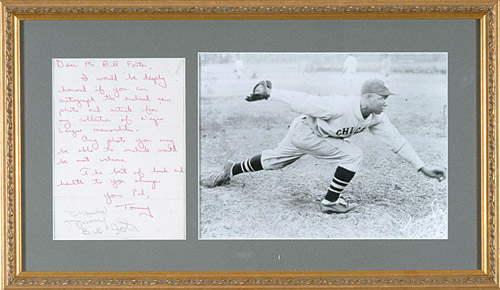 Dear Mr. Bill Foster,
I would be deeply
honored if you can
autograph the enclosed news
photo and article for
my collection of Negro
League memorabilia.
Any photo you may
be able to
be most welcome.
The best of luck and
health to you always.
your Pal,
Tommy
Bill Foster
CHICA